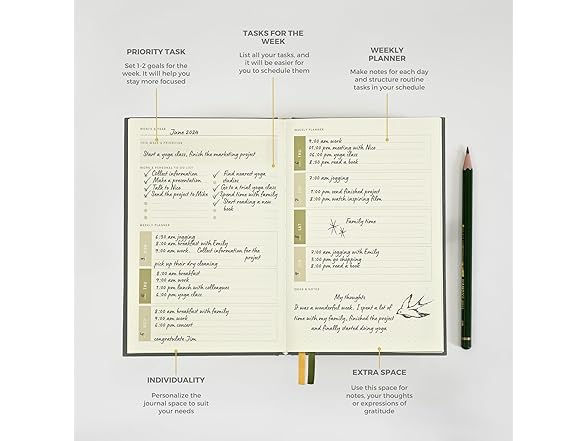 TASKS FOR THE
WEEK
List all your tasks, and
it will be easier for
you to schedule them
PRIORITY TASK
Set 1-2 goals for the
week. It will help you
stay more focused
WEEKLY
PLANNER
Make notes for each day
and structure routine
tasks in your schedule
MONTH & YEAR
June 2024
THIS WEEK'S PRIORITIES
Start a yoga class, finish the marketing project
WORK & PERSONAL TO-DO LIST
Collect information
Make a presentation
Talk to Nico
Send the project to Mike
Find nearest yoga
studios
Go to a trial yoga class
Spend time with family
Start reading a new
book
WEEKLY PLANNER
6:30 am jogging
8:00 am breakfast with Emily
9:00 am work. Collect information for the
project
pick up their dry cleaning
8:00 am breakfast
9:00 am work
1:00 pm lunch with colleagues
6:00 pm yoga class
8:00 am breakfast with family
9:00 am work
6:00 pm concert
congratulate Jim
WEEKLY PLANNER
THU
9:00 am work
01:00 pm meeting with Nico
06:00 pm yoga class
8:00 pm read a book
7:00 am jogging
1:00 pm send finished project
8:00 pm watch inspiring film
SAT
Family time
7:00 am jogging with Emily
3:00 pm go shopping
8:00 pm read a book
IDEAS & NOTES
My thoughts
It was a wonderful week. I spent a lot of
time with my family, finished the project
and finally started doing yoga
INDIVIDUALITY
Personalize the
journal space to suit
your needs
EXTRA SPACE
Use this space for
notes, your thoughts
or expressions of
gratitude